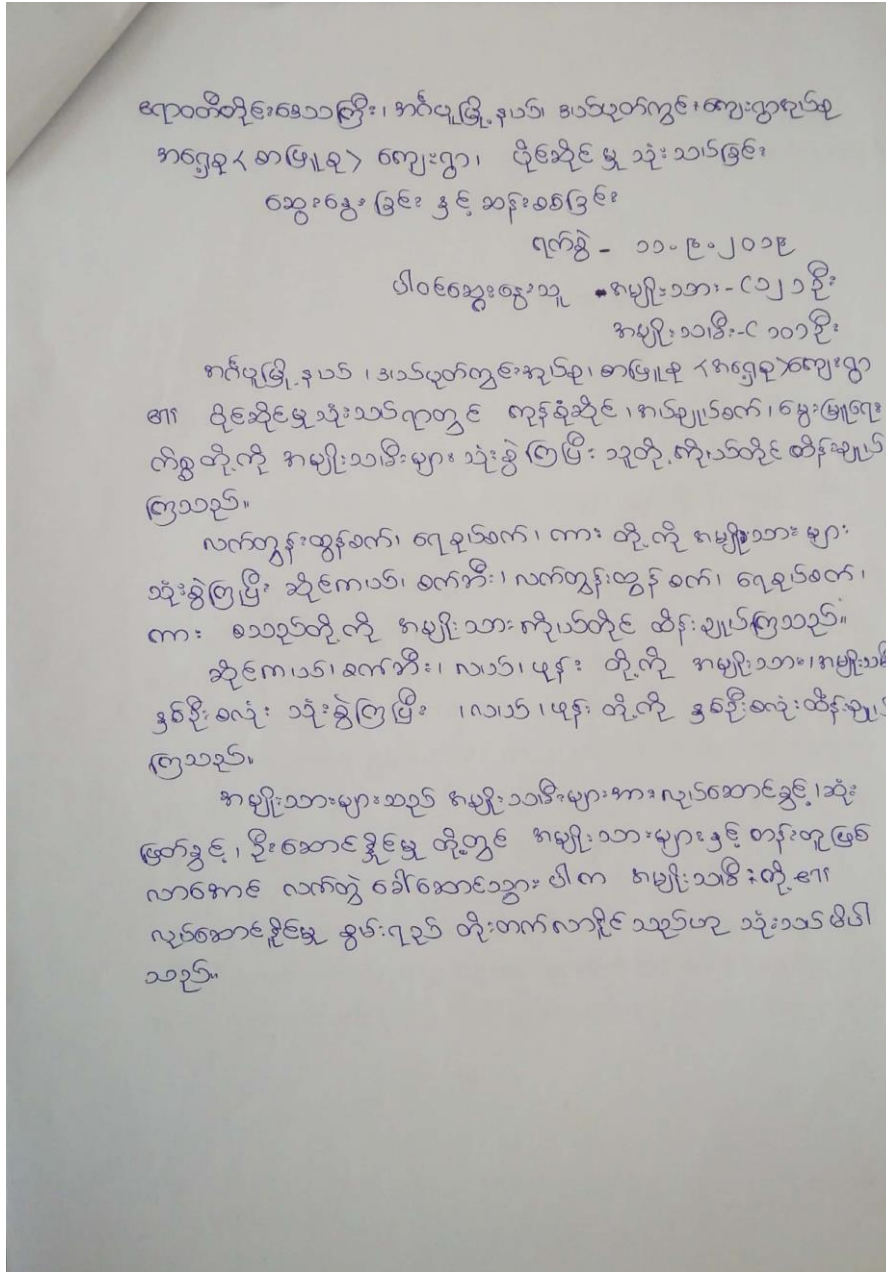 ဧရာဝတီတိုင်းဒေသကြီး၊ အင်္ဂပူမြို့နယ်၊ ဒယ်ပုတ်ကွင်းကျေးရွာအုပ်စု
အရှေ့စု < စာဖြူစု > ကျေးရွာ၊ ပိုင်ဆိုင်မှု သုံးသပ်ခြင်း
ဆွေးနွေးခြင်း နှင့် ဆန်းစစ်ခြင်း
ရက်စွဲ - ၁၁.၉.၂၀၁၉
ပါဝင်ဆွေးနွေးသူ - အမျိုးသား - (၁၂) ဦး
အမျိုးသမီး - (၁၀) ဦး
အင်္ဂပူမြို့နယ်၊ ဒယ်ပုတ်ကွင်းအုပ်စု၊ စာဖြူစု < အရှေ့စု > ကျေးရွာ
၏ ပိုင်ဆိုင်မှုသုံးသပ်ရာတွင် ကုန်စုံဆိုင်၊ အပ်ချုပ်စက်၊ မွေးမြူရေး
ကိစ္စတို့ကို အမျိုးသမီးများ သုံးစွဲကြပြီး သူတို့ကိုယ်တိုင် ထိန်းချုပ်
ကြသည်။
လက်တွန်းထွန်စက်၊ ရေစုပ်စက်၊ ကား တို့ကို အမျိုးသားများ
သုံးစွဲကြပြီး ဆိုင်ကယ်၊ စက်ဘီး၊ လက်တွန်းထွန်စက်၊ ရေစုပ်စက်၊
ကား စသည်တို့ကို အမျိုးသားကိုယ်တိုင် ထိန်းချုပ်ကြသည်။
ဆိုင်ကယ်၊ စက်ဘီး၊ လယ်၊ ဖုန်း တို့ကို အမျိုးသား၊ အမျိုးသမီး
နှစ်ဦးစလုံး သုံးစွဲကြပြီး ၊လယ်၊ဖုန်း တို့ကို နှစ်ဦးစလုံးထိန်းချုပ်
ကြသည်။
အမျိုးသားများသည် အမျိုးသမီးများအားလုပ်ဆောင်ခွင့်၊ ဆုံး
ဖြတ်ခွင့်၊ ဦးဆောင်နိုင်မှု တို့တွင် အမျိုးသားများနှင့် တန်းတူဖြစ်
လာအောင် လက်တွဲ ခေါ်ဆောင်သွားပါက အမျိုးသမီးတို့၏
လုပ်ဆောင်နိုင်မှု စွမ်းရည် တိုးတက်လာနိုင်သည်ဟု သုံးသပ်မိပါ
သည်။